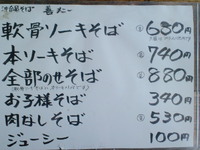 沖縄そば
軟骨ソーキそば ① 680円
本ソーキそば ② 740円
全部のせそば ③ 880円
お子様そば 340円
肉なしそば ⑤ 530円
ジューシー 100円